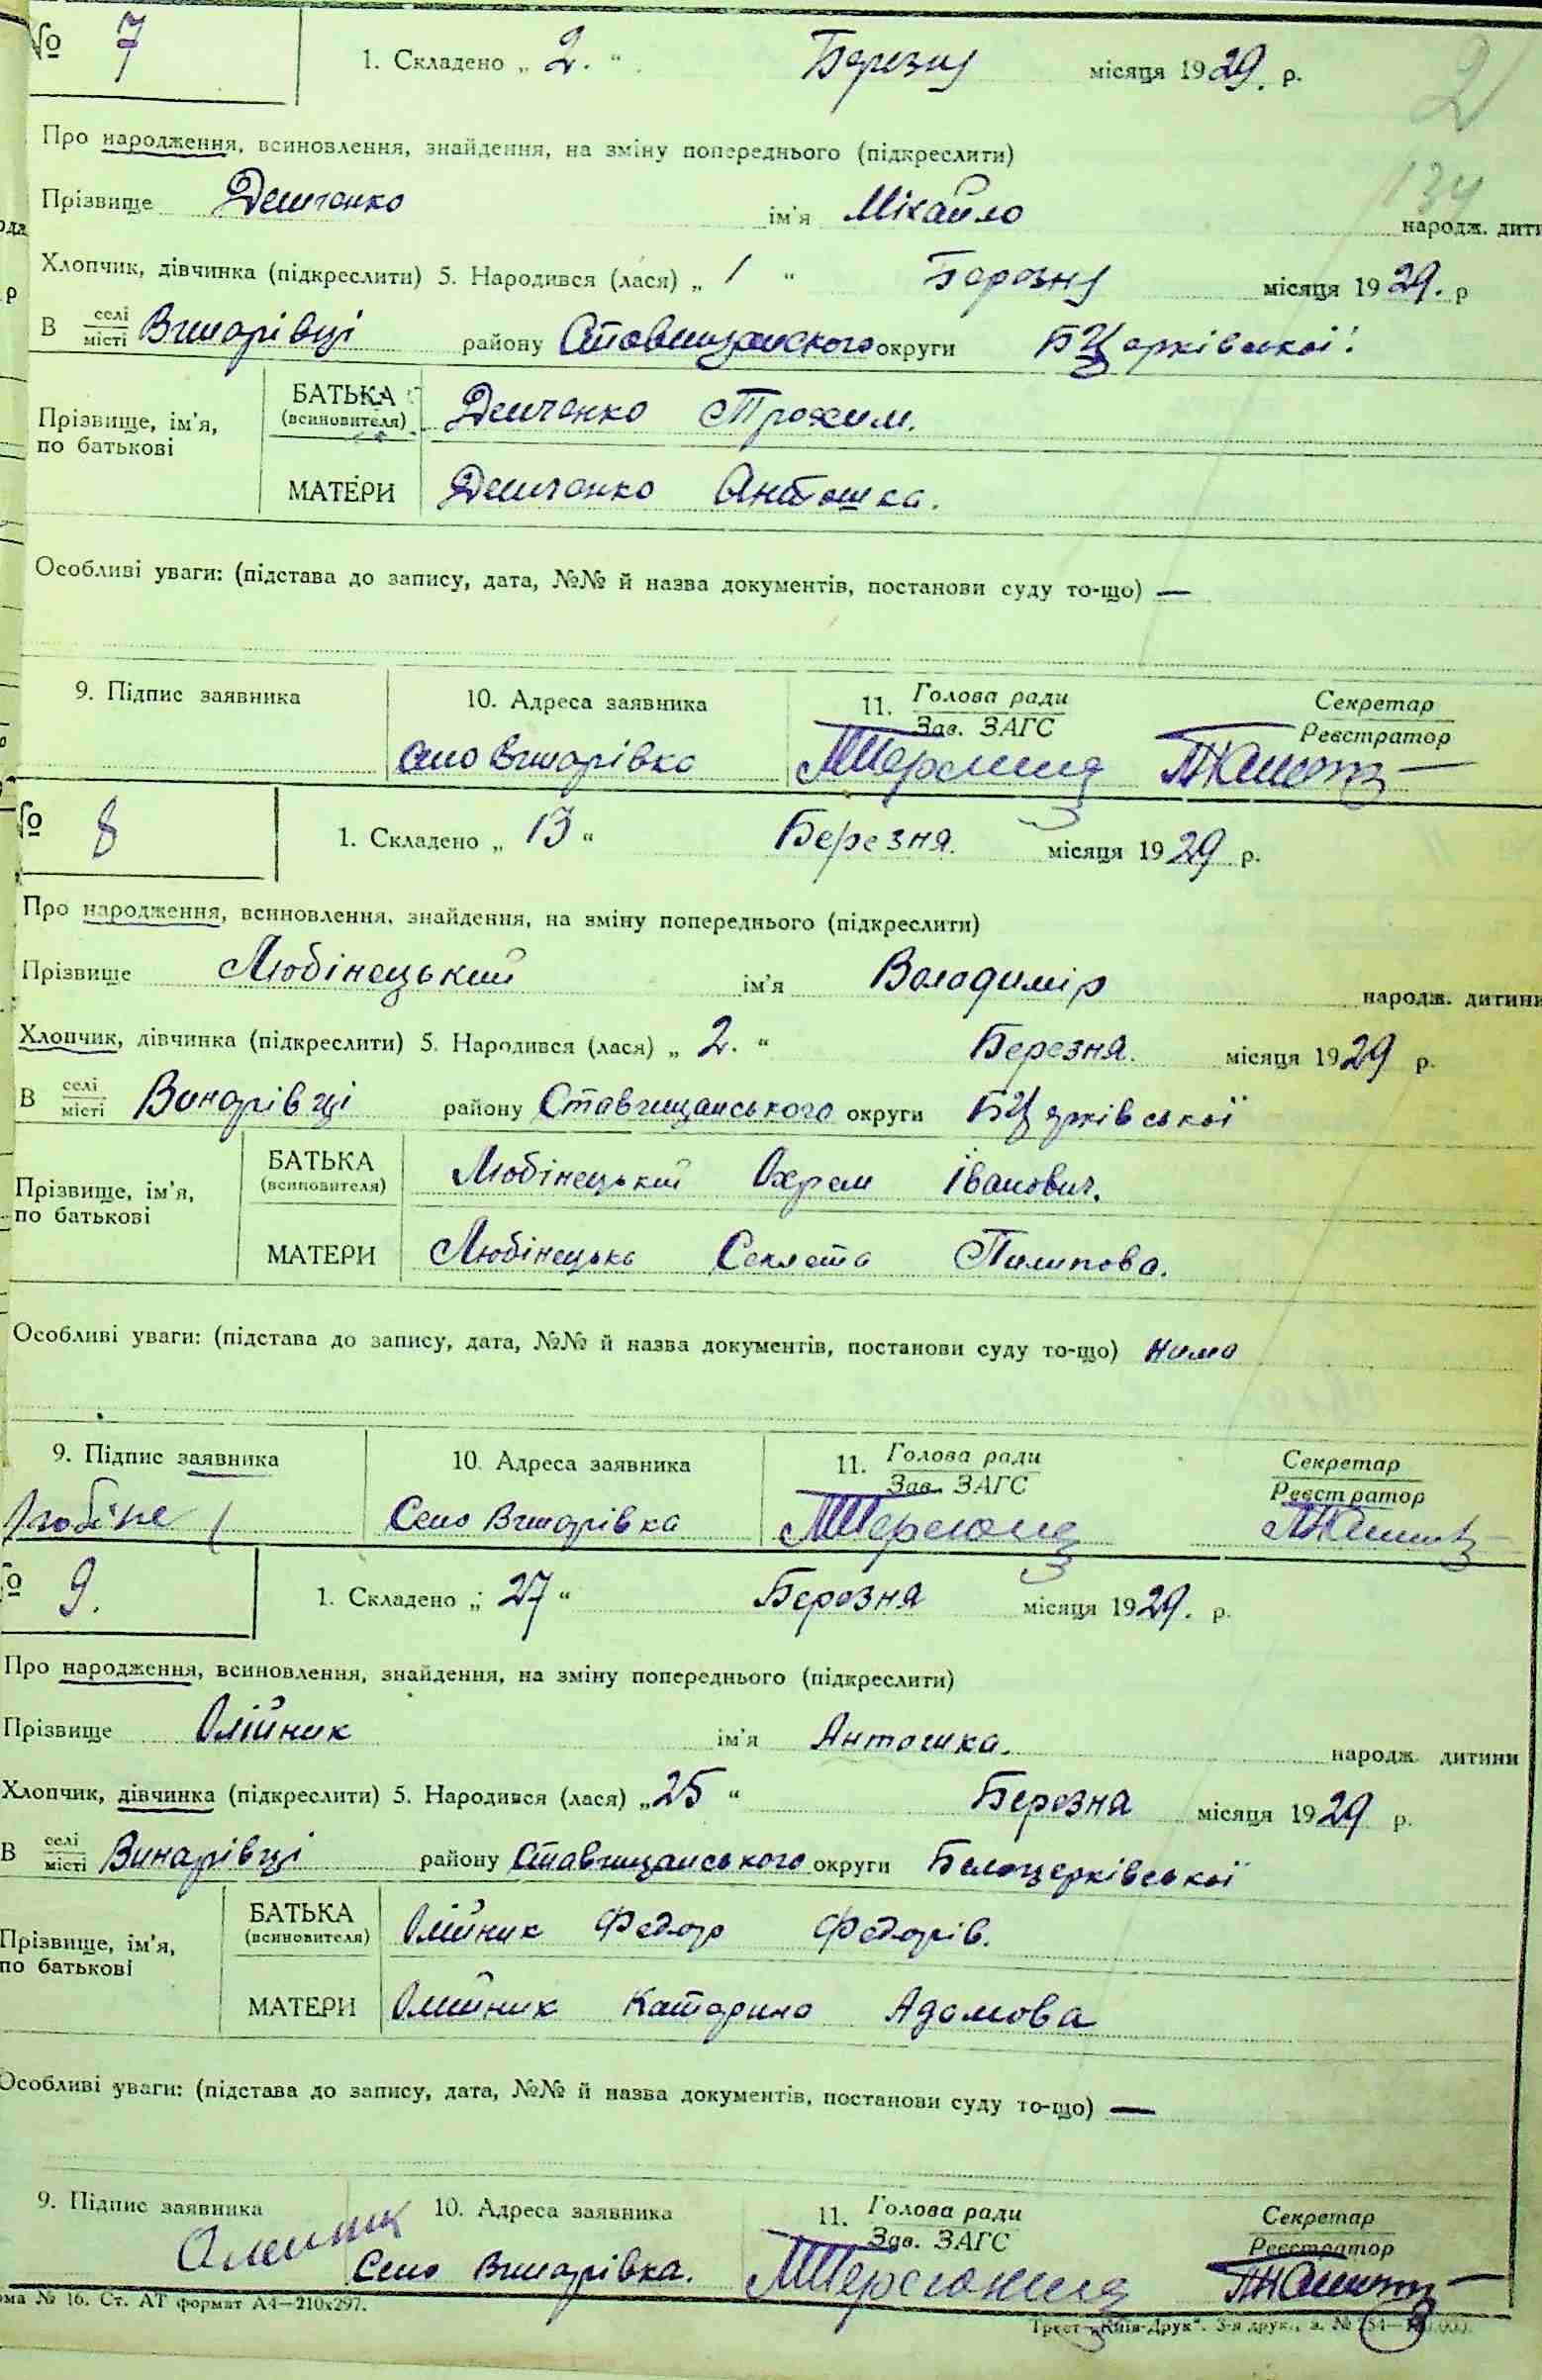 № 7 1. Складено „ 2. “ Березня місяця 1929. р.
2
Про народження, всиновлення, знайдення, на зміну попереднього (підкреслити)
134
Прізвище Демченко ім'я Міхайло народж. дити
Хлопчик, дівчинка (підкреслити) 5. Народився (лася) „ 1 “ Березня місяця 1929. р
В селі місті Винарівці району Ставищанського округи БЦерківської
БАТЬКА (всиновителя) Демченко Трохим.
Прізвище, ім'я, по батькові
МАТЕРИ Демченко Антошка.
Особливі уваги: (підстава до запису, дата, №№ й назва документів, постанови суду то-що) —
9. Підпис заявника 10. Адреса заявника 11. Голова ради Зав. ЗАГС Секретар Реєстратор
село Винарівка
№ 8 1. Складено „ 13 “ Березня. місяця 1929 р.
Про народження, всиновлення, знайдення, на зміну попереднього (підкреслити)
Прізвище Любінецький ім'я Володимір народж. дитини
Хлопчик, дівчинка (підкреслити) 5. Народився (лася) „ 2. “ Березня. місяця 1929 р.
В селі місті Винарівці району Ставищанського округи БЦерківської
БАТЬКА (всиновителя) Любінецький Охрем Іванович.
Прізвище, ім'я, по батькові
МАТЕРИ Любінецька Секлета Пилипова.
Особливі уваги: (підстава до запису, дата, №№ й назва документів, постанови суду то-що) нима
9. Підпис заявника 10. Адреса заявника 11. Голова ради Зав. ЗАГС Секретар Реєстратор
Любіне Село Винарівка
№ 9. 1. Складено „ 27 “ Березня місяця 1929. р.
Про народження, всиновлення, знайдення, на зміну попереднього (підкреслити)
Прізвище Олійник ім'я Антошка. народж. дитини
Хлопчик, дівчинка (підкреслити) 5. Народився (лася) „ 25 “ Березня місяця 1929 р.
В селі місті Винарівці району Ставищанського округи Белоцерківської
БАТЬКА (всиновителя) Олійник Федор Федорів.
Прізвище, ім'я, по батькові
МАТЕРИ Олийник Катерина Адамова
Особливі уваги: (підстава до запису, дата, №№ й назва документів, постанови суду то-що) —
9. Підпис заявника 10. Адреса заявника 11. Голова ради Зав. ЗАГС Секретар Реєстратор
Олиник Село Винарівка.
ма № 16. Ст. АТ формат А4—210х297.
Трест „Київ-Друк“. 3-я друк., з. №